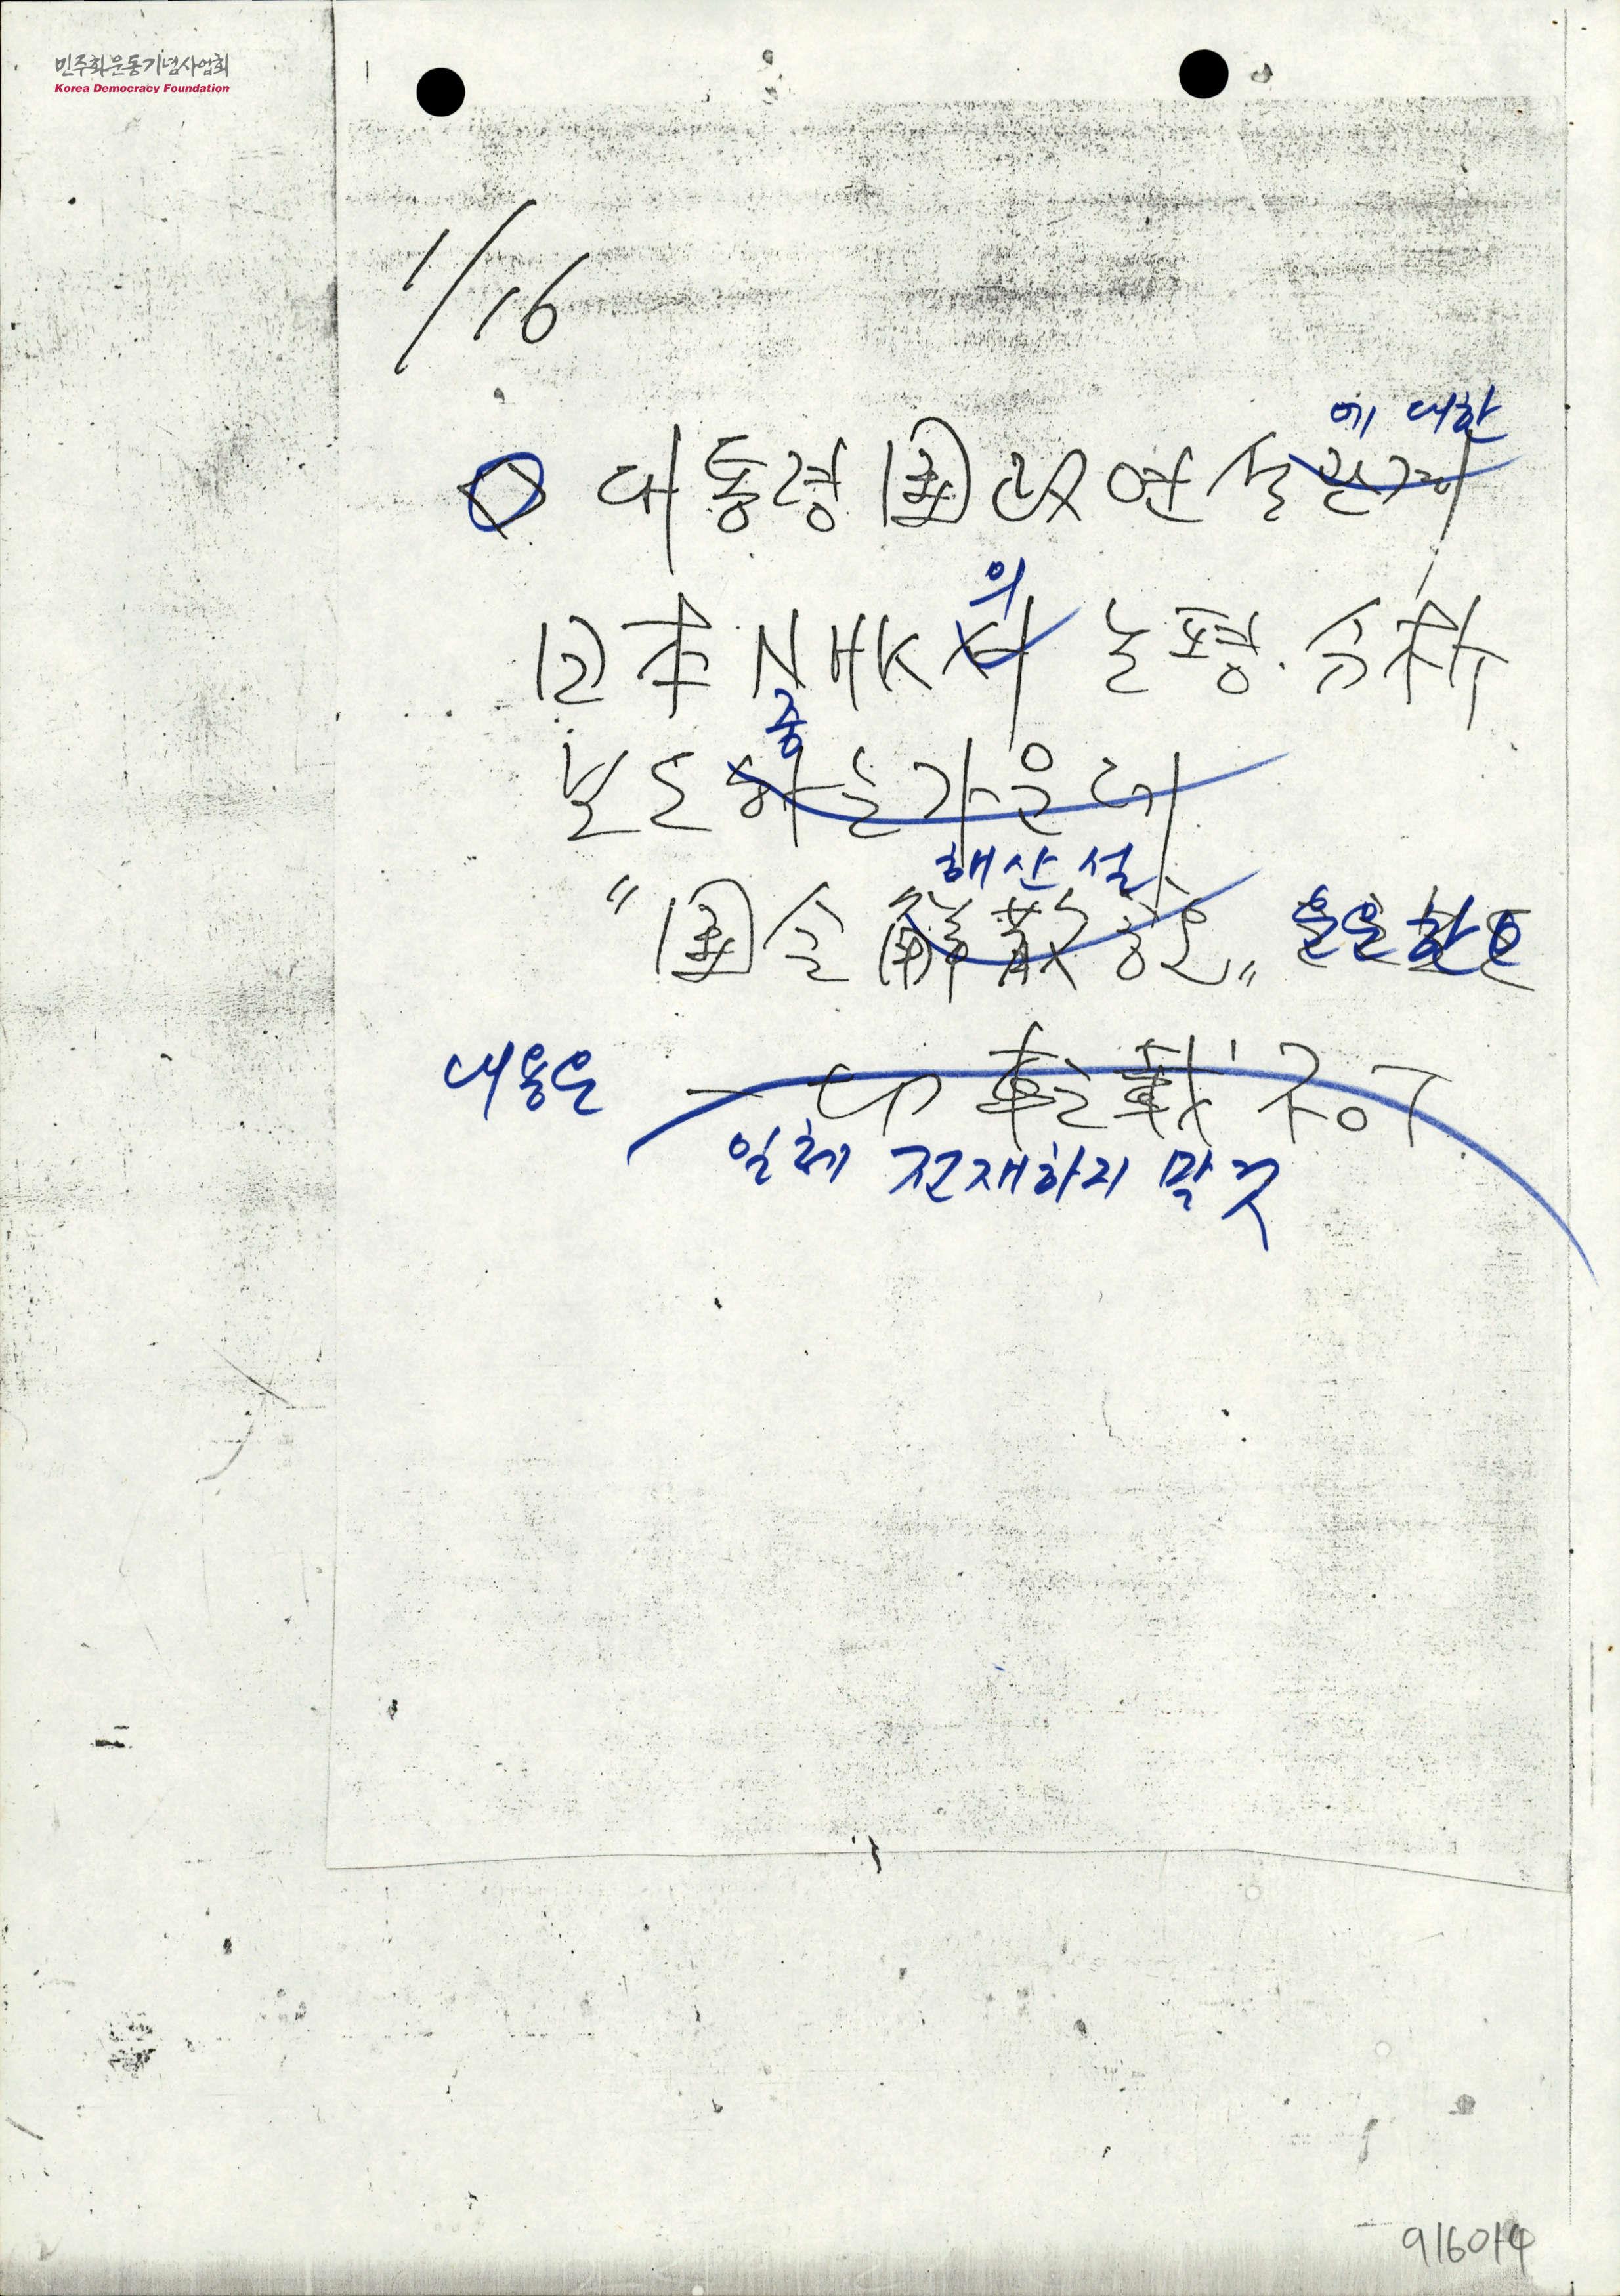 민주화운동기념사업회
Korea Democracy Foundation
1/16
에 대한
◇ 대통령 國政연설관계
의
日本 NHK서 논평·分析
중
보도하는 가운데
해산설
"國会解散說"
을 운운한
내용은 一切 転載 不可
일체 전재하지 말 것
916014